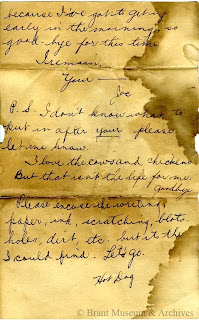 because I have got to get up
early in the morning, so
good-bye for this time
I remain,
Your —
Joe
P.S. I don't know what to
put in after your please
let me know.
I love the cows and chickens
But that isn't the life for me.
Goodbye
Please excuse the writing,
paper, ink, scratching, blots
holes, dirt, etc. but it the
I could find. Lets go.
Hot Dog
© Brant Museum & Archives